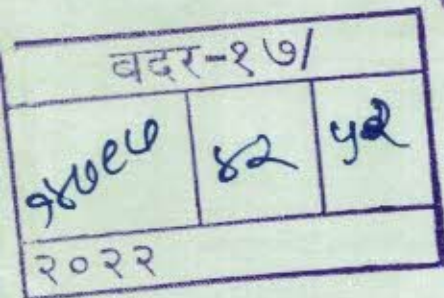 वदर-१७/
१४७९७ ४२ ५२
२०२२